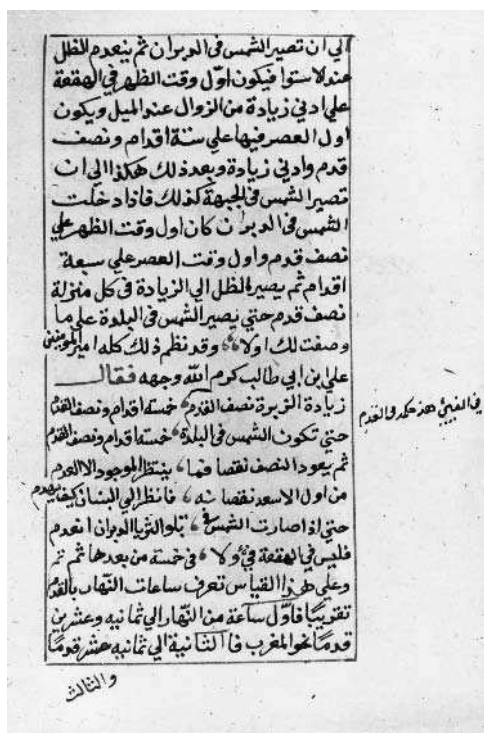 الي ان تصير الشمس في الدبران ثم ينعدم الظل
عند الاستوا فيكون اول وقت الظهر في الهقعة
علي ادني زيادة من الزوال عند الميل ويكون
اول العصر فيها علي ستة اقدام ونصف
قدم وادني زيادة وبعد ذلك هكذا الي ان
تصير الشمس في الجبهة كذلك فاذا دخلت
الشمس في الدبران كان اول وقت الظهر علي
نصف قدم واول وقت العصر علي سبعة
اقدام ثم يصير الظل الي الزيادة في كل منزلة
نصف قدم حتي يصير الشمس في البلدة علي ما
وصفت لك اولا وقد نظم ذلك كله امير المومنين
علي ابن ابي طالب كرم الله وجهه فقال
زيادة الزبرة نصف القدم خمسة اقدام ونصف القدم
حتي تكون الشمس في البلدة خمسة اقدام ونصف القدم
ثم يعود النصف نقصا فما ينتظر الموجود الا العدم
من اول الاسعد نقصانه فانظر الي النسان كيف
حتي اذا صارت الشمس في تلو الثريا الدبران انعدم
فليس في الهقعة في ولا في خمسة من بعدها ثم تم
وعلي هذا القياس تعرف ساعات النهار بالقدم
تقريبًا فاول ساعة من النهار الي ثمانية وعشرين
قدمًا نحو المغرب فا الثانية الي ثمانية عشر قدمًا
والثالث
في الفيئ هذ حكم والقدم